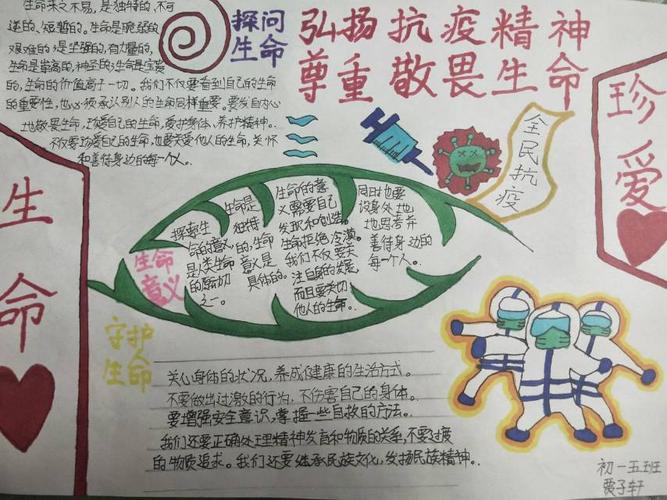 弘扬抗疫精神
尊重敬畏生命
探问
生命
生命来之不易,是独特的,不可
逆的、短暂的。生命是脆弱的
艰难的,是坚强的,有力量的,
生命是崇高的,神圣的;生命是宝贵
的,生命的价值高于一切。我们不仅要看到自己的生命
的重要性,也必须承认别人的生命同样重要。要发自内心
地敬畏生命,珍爱自己的生命,爱护身体、养护精神。
不仅要珍爱自己的生命,也要关爱他人的生命,关怀
和善待身边的每一个人。
全民抗疫
珍爱
生命
生命
意义
探索生
命的意义
是人类生命
的原动力
之一。
生命是
独特
的,生命
意义是
具体的。
生命的意
义需要自己
发现和创造。
生命拒绝冷漠。
我们不仅要关
注自身的发展,
而且要关切
他人的生命。
同时也要
设身处地
地思考并
善待身边的
每一个人。
守护
生命
关心身体的状况,养成健康的生活方式。
不要做出过激的行为,不伤害自己的身体。
要增强安全意识,掌握一些自救的方法。
我们还要正确处理精神发育和物质的关系,不要过度
的物质追求。我们还要继承民族文化,发扬民族精神。
初一五班
子轩